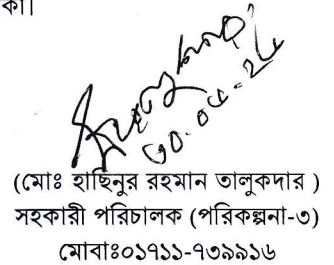 কা।
৩০.০৫.২৪
(মোঃ হাছিনুর রহমান তালুকদার )
সহকারী পরিচালক (পরিকল্পনা-৩)
মোবাঃ০১৭১১-৭৩৯৯১৬